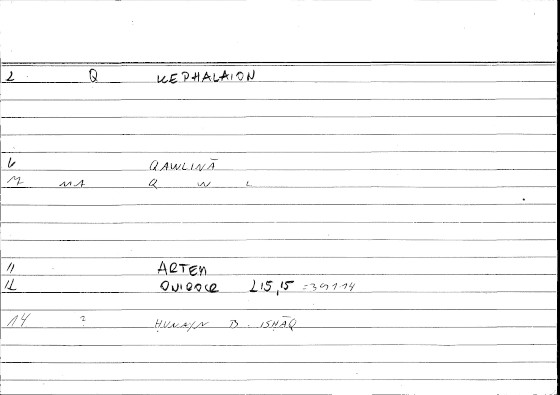 2 Q KEPHALAION
6 QAWLINĀ
7 MA Q W L
11 ARTEM
12 QUIDOCE 215,15
14 ? ḤUNAYN B. ISḤĀQ